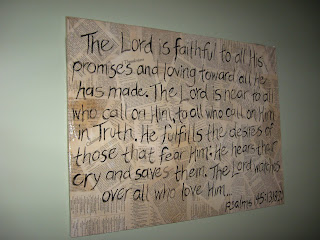 The Lord is faithful to all His
promises and loving toward all He
has made. The Lord is near to all
who call on Him, to all who call on Him
in Truth. He fulfills the desires of
those that fear Him: He hears their
cry and saves them. The Lord watches
over all who love Him...
Psalms 145:13